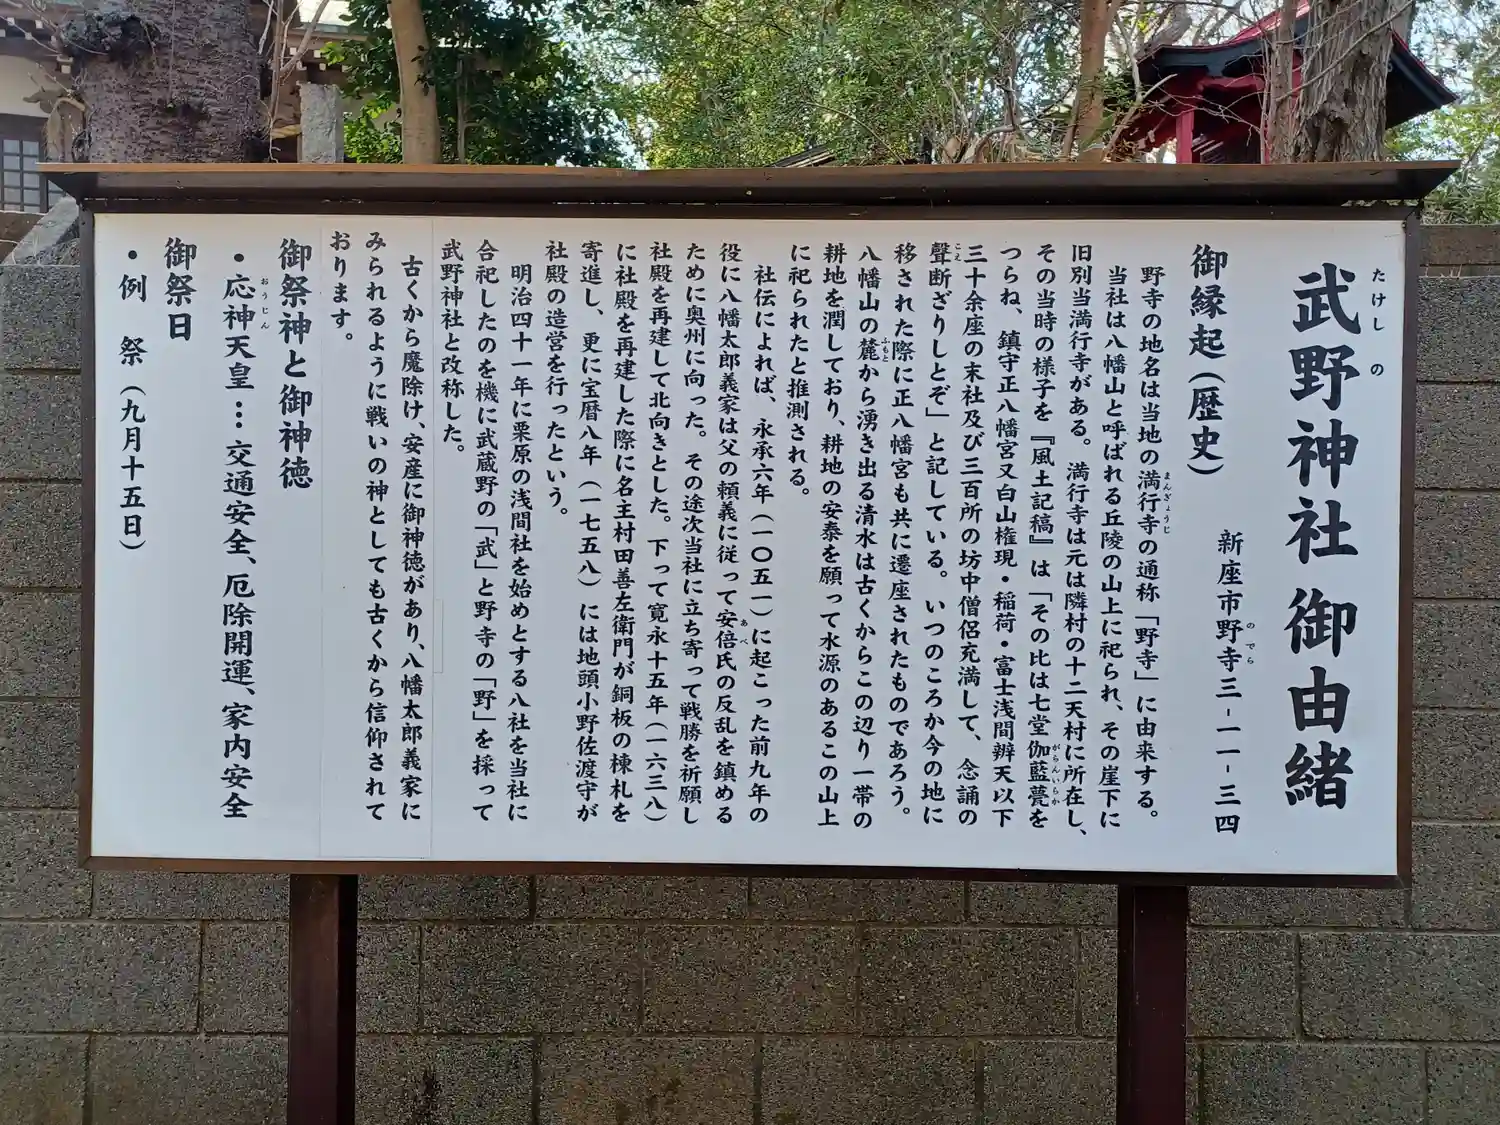 武野神社 御由緒
たけしの
新座市野寺三-一一-三四
のでら
御縁起(歴史)
野寺の地名は当地の満行寺の通称「野寺」に由来する。
まんぎょうじ
当社は八幡山と呼ばれる丘陵の山上に祀られ、その崖下に
旧別当満行寺がある。満行寺は元は隣村の十二天村に所在し、
その当時の様子を『風土記稿』は「その比は七堂伽藍甍を
がらんいらか
つらね、鎮守正八幡宮又白山権現・稲荷・富士浅間辨天以下
三十余座の末社及び三百所の坊中僧侶充満して、念誦の
聲断ざりしとぞ」と記している。いつのころか今の地に
こえ
移された際に正八幡宮も共に遷座されたものであろう。
八幡山の麓から湧き出る清水は古くからこの辺り一帯の
ふもと
耕地を潤しており、耕地の安泰を願って水源のあるこの山上
に祀られたと推測される。
社伝によれば、永承六年(一〇五一)に起こった前九年の
役に八幡太郎義家は父の頼義に従って安倍氏の反乱を鎮める
あべ
ために奥州に向った。その途次当社に立ち寄って戦勝を祈願し
社殿を再建して北向きとした。下って寛永十五年(一六三八)
に社殿を再建した際に名主村田善左衛門が銅板の棟札を
寄進し、更に宝暦八年(一七五八)には地頭小野佐渡守が
社殿の造営を行ったという。
明治四十一年に栗原の浅間社を始めとする八社を当社に
合祀したのを機に武蔵野の「武」と野寺の「野」を採って
武野神社と改称した。
古くから魔除け、安産に御神徳があり、八幡太郎義家に
みられるように戦いの神としても古くから信仰されて
おります。
御祭神と御神徳
・応神天皇…交通安全、厄除開運、家内安全
おうじん
御祭日
・例 祭(九月十五日)